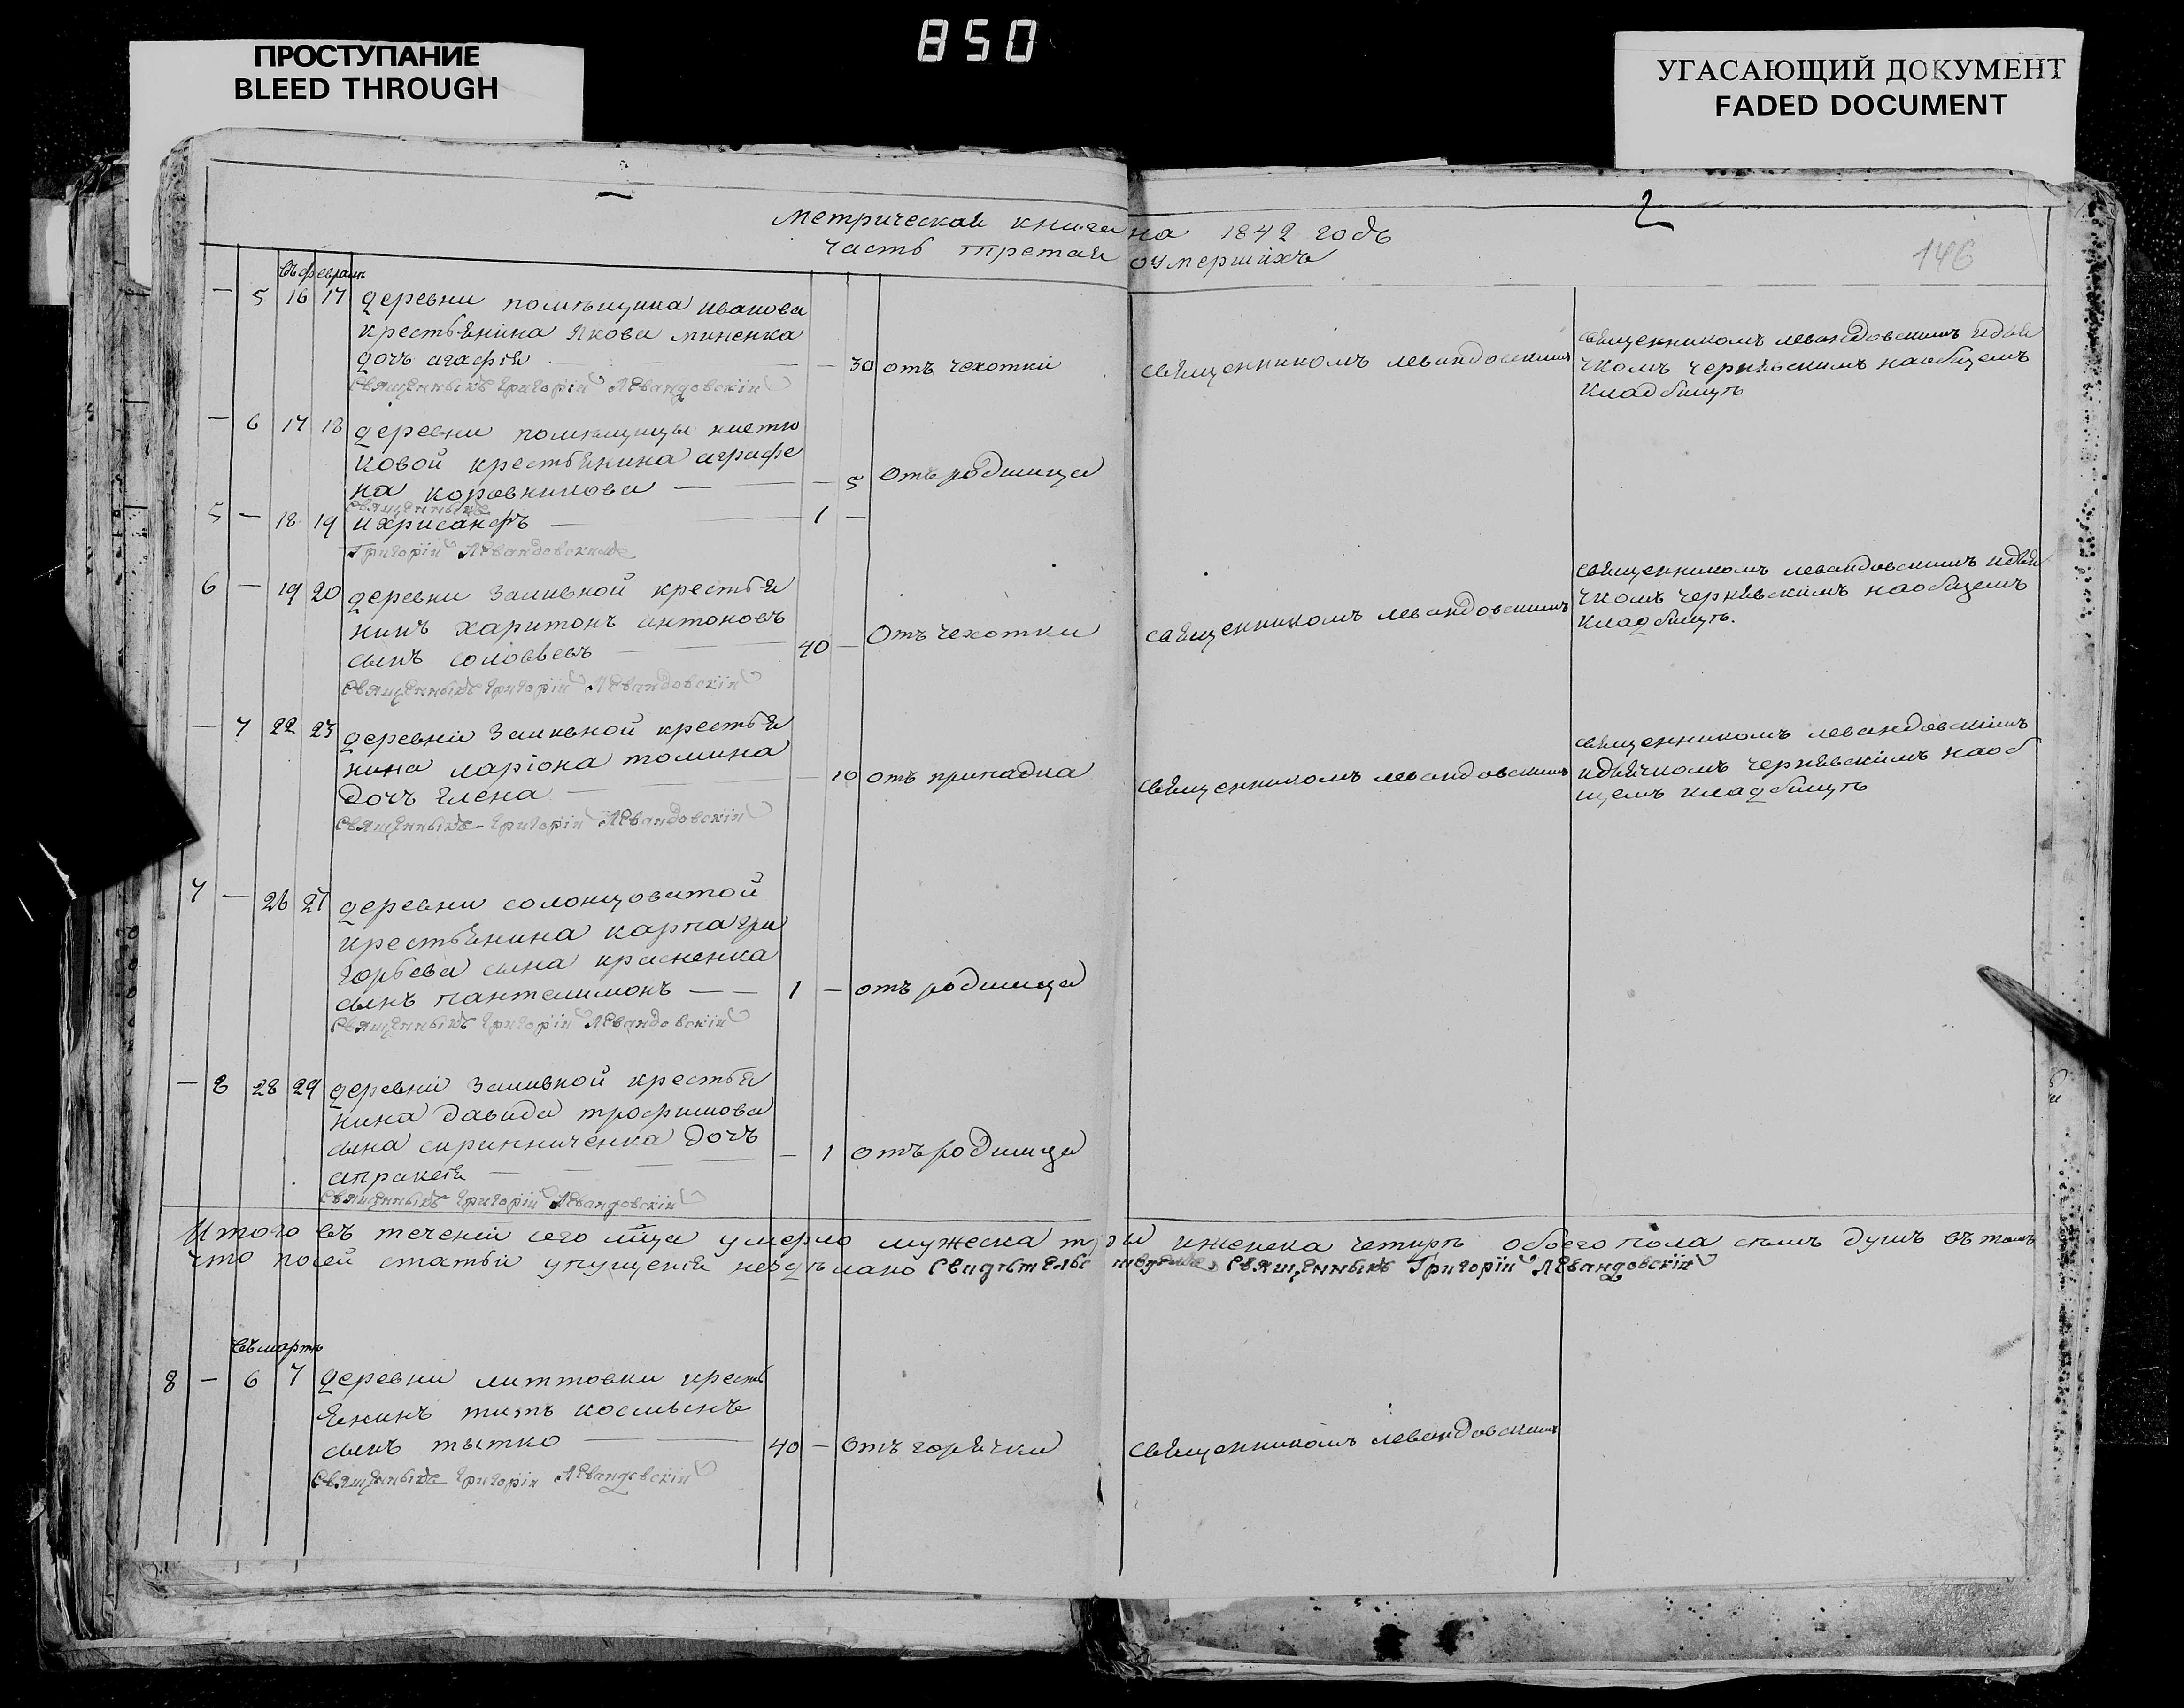 850
ПРОСТУПАНИЕ
BLEED THROUGH
УГАСАЮЩИЙ ДОКУМЕНТ
FADED DOCUMENT
2
146
Метрическая книга на 1842 годъ
часть третая оумершихъ
въ феврале
— 5 16 17 деревни помѣщика иванова
крестьянина Якова миненка
дочь агафія — — 30 отъ чехотки священникомъ левандовскимъ
священникомъ левандовскимъ идья
чкомъ чернѣвскимъ наобщемъ
кладбищѣ
Священныкъ Григорій Левандовскій
— 6 17 18 деревни помѣщицы
ковой крестьянина аграфе
на коровникова — — 5 отъ родимца
Священныкъ
5 — 18 19 ихрисанфъ — 1 —
Григорій Левандовскій
6 — 19 20 деревни заливной крестья
нинъ харитонъ антоновъ
сынъ соловьевъ — 40 — отъ чехотки священникомъ левандовскимъ
священникомъ левандовскимъ идья
чкомъ чернѣвскимъ наобщемъ
кладбищѣ.
Священныкъ Григорій Левандовскій
— 7 22 23 деревни заливной крестья
нина ларіона томина
дочь Елена — — 10 отъ припадка священникомъ левандовскимъ
священникомъ левандовскимъ
идьячкомъ чернѣвскимъ наоб
щемъ кладбищѣ
Священныкъ Григорій Левандовскій
7 — 26 27 деревни солонцоватой
крестьянина карпа гри
горьева сына красненка
сынъ пантелимонъ — — 1 — отъ родимца
Священныкъ Григорій Левандовскій
— 8 28 29 деревни заливной крестья
нина давида трофимова
сына скринниченка дочь
апраксія — — 1 отъ родимца
Священныкъ Григорій Левандовскій
Итого въ теченіи сего мца умерло мужеска три иженска четырѣ обоего пола сѣмъ душъ въ томъ
что посей статьи упущенія несдѣлано Свидѣтельствуемъ Священныкъ Григорій Левандовскій
въ мартѣ
8 — 6 7 деревни литтовки кресть
янинъ титъ косминъ
сынъ тытко — 40 — отъ горячки священникомъ левандовскимъ
Священныкъ Григорій Левандовскій